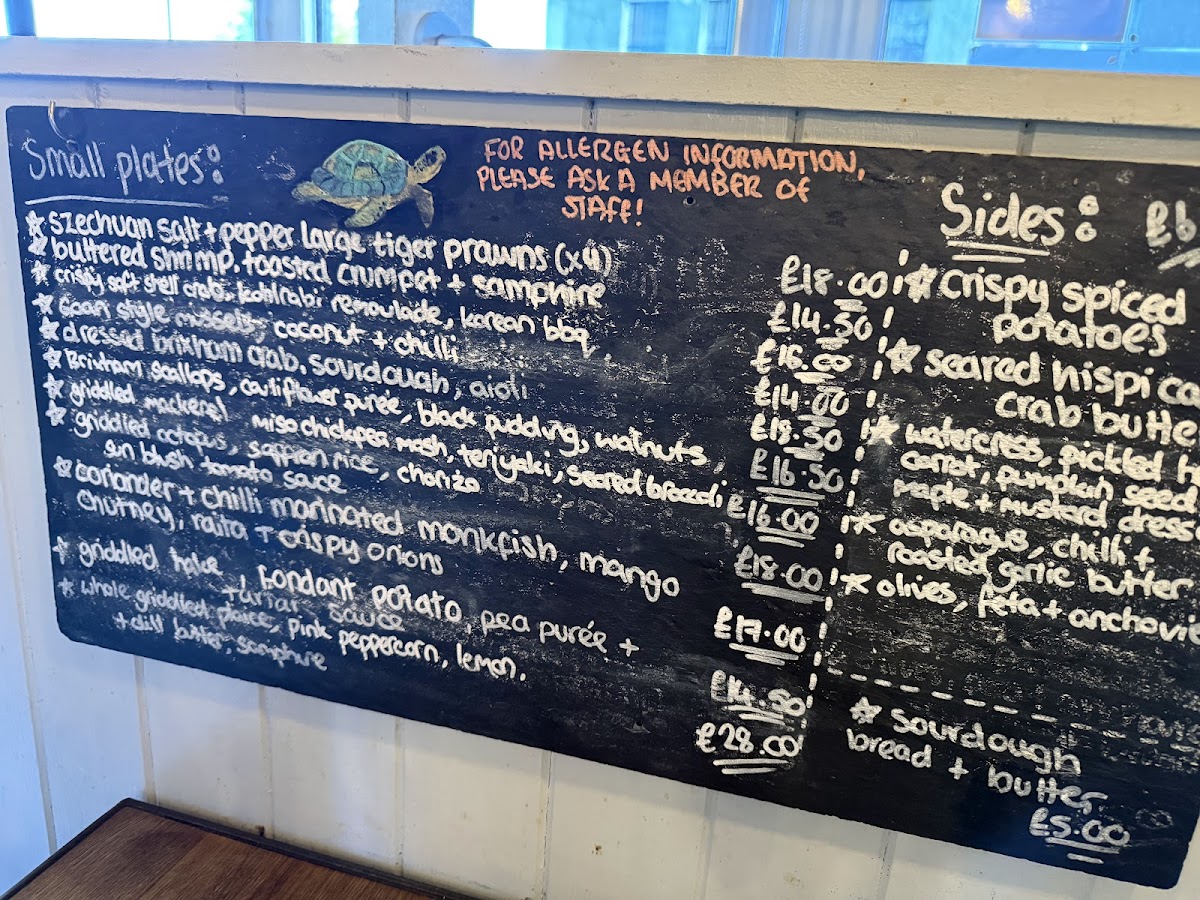 Small plates:
FOR ALLERGEN INFORMATION,
PLEASE ASK A MEMBER OF
STAFF!
szechuan salt + pepper large tiger prawns (x4)
£18.00
buttered shrimp, toasted crumpet + samphire
£14.50
crispy soft shell crab, kohlrabi remoulade, korean bbq
£16.00
Goan style mussels coconut + chilli
£14.00
dressed brixham crab, sourdough, aioli
£18.50
Brixham scallops, cauliflower purée, black pudding, walnuts,
£16.50
griddled mackerel miso chickpea mash, teriyaki, seared broccoli
£16.00
griddled octopus, saffron rice, chorizo
sun blush tomato sauce
£18.00
coriander + chilli marinated monkfish, mango
chutney, raita + crispy onions
£17.00
griddled hake, fondant potato, pea purée +
tartar sauce
£14.50
whole griddled plaice, pink peppercorn, lemon,
+ dill butter, samphire
£28.00
Sides: £6
crispy spiced
potatoes
seared hispi
crab butte
watercress, pickled
carrot, pumpkin seed
maple + mustard dress
asparagus, chilli +
roasted garlic butter
olives, feta + anchovi
sourdough
bread + butter
£5.00